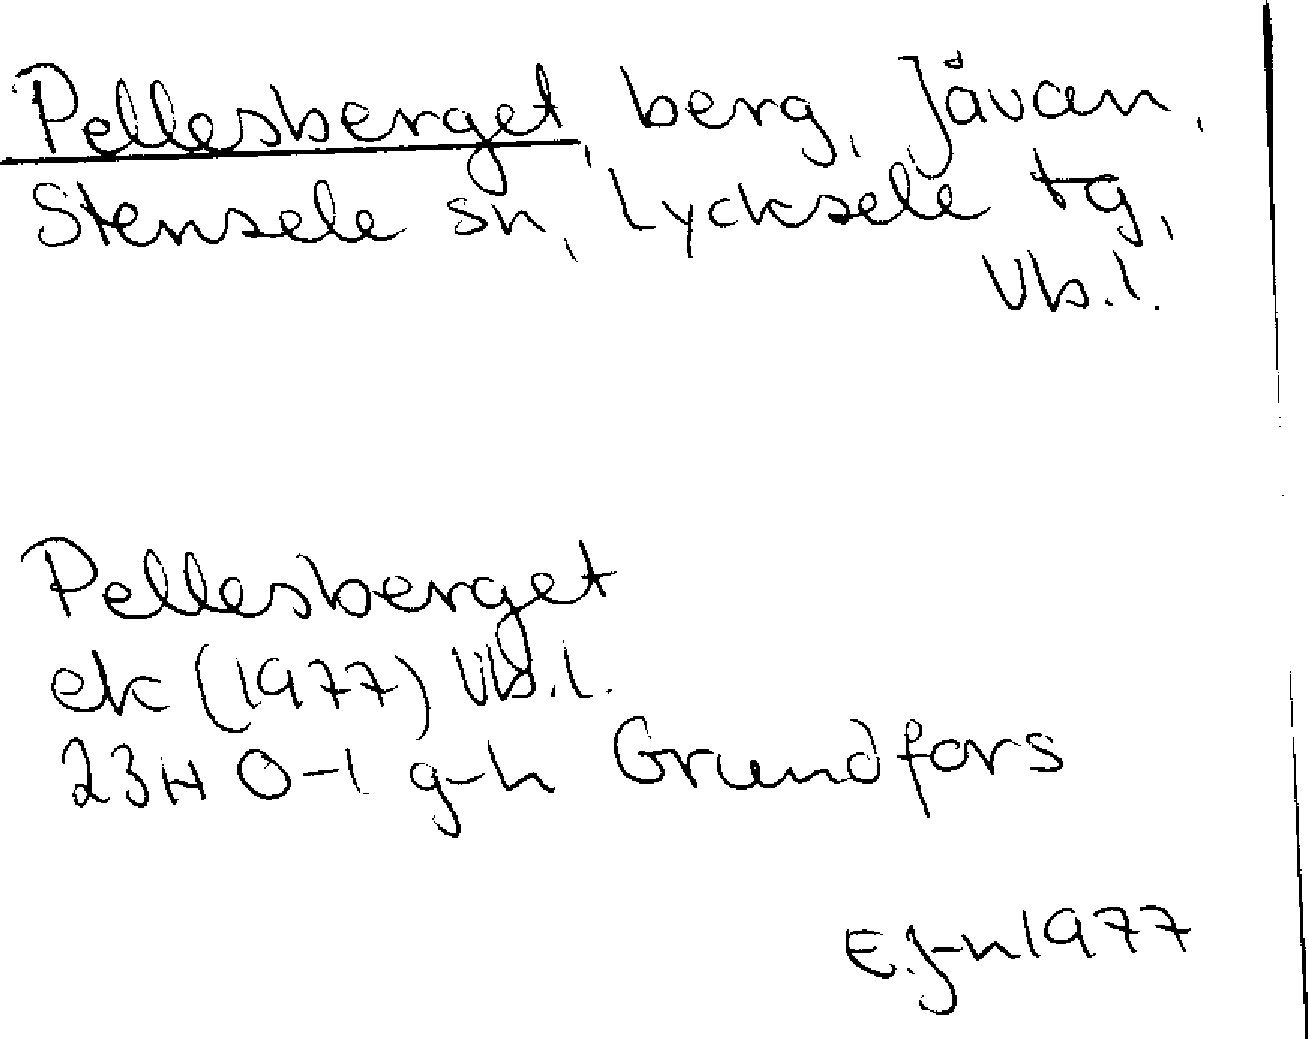 Pellesberget, berg, Jåvan,
Stensele sn, Lycksele tg,
Vb.l.
Pellesberget
ek (1977) Vb.l.
23H 0-1 g-h Grundfors
E.J-n 1977